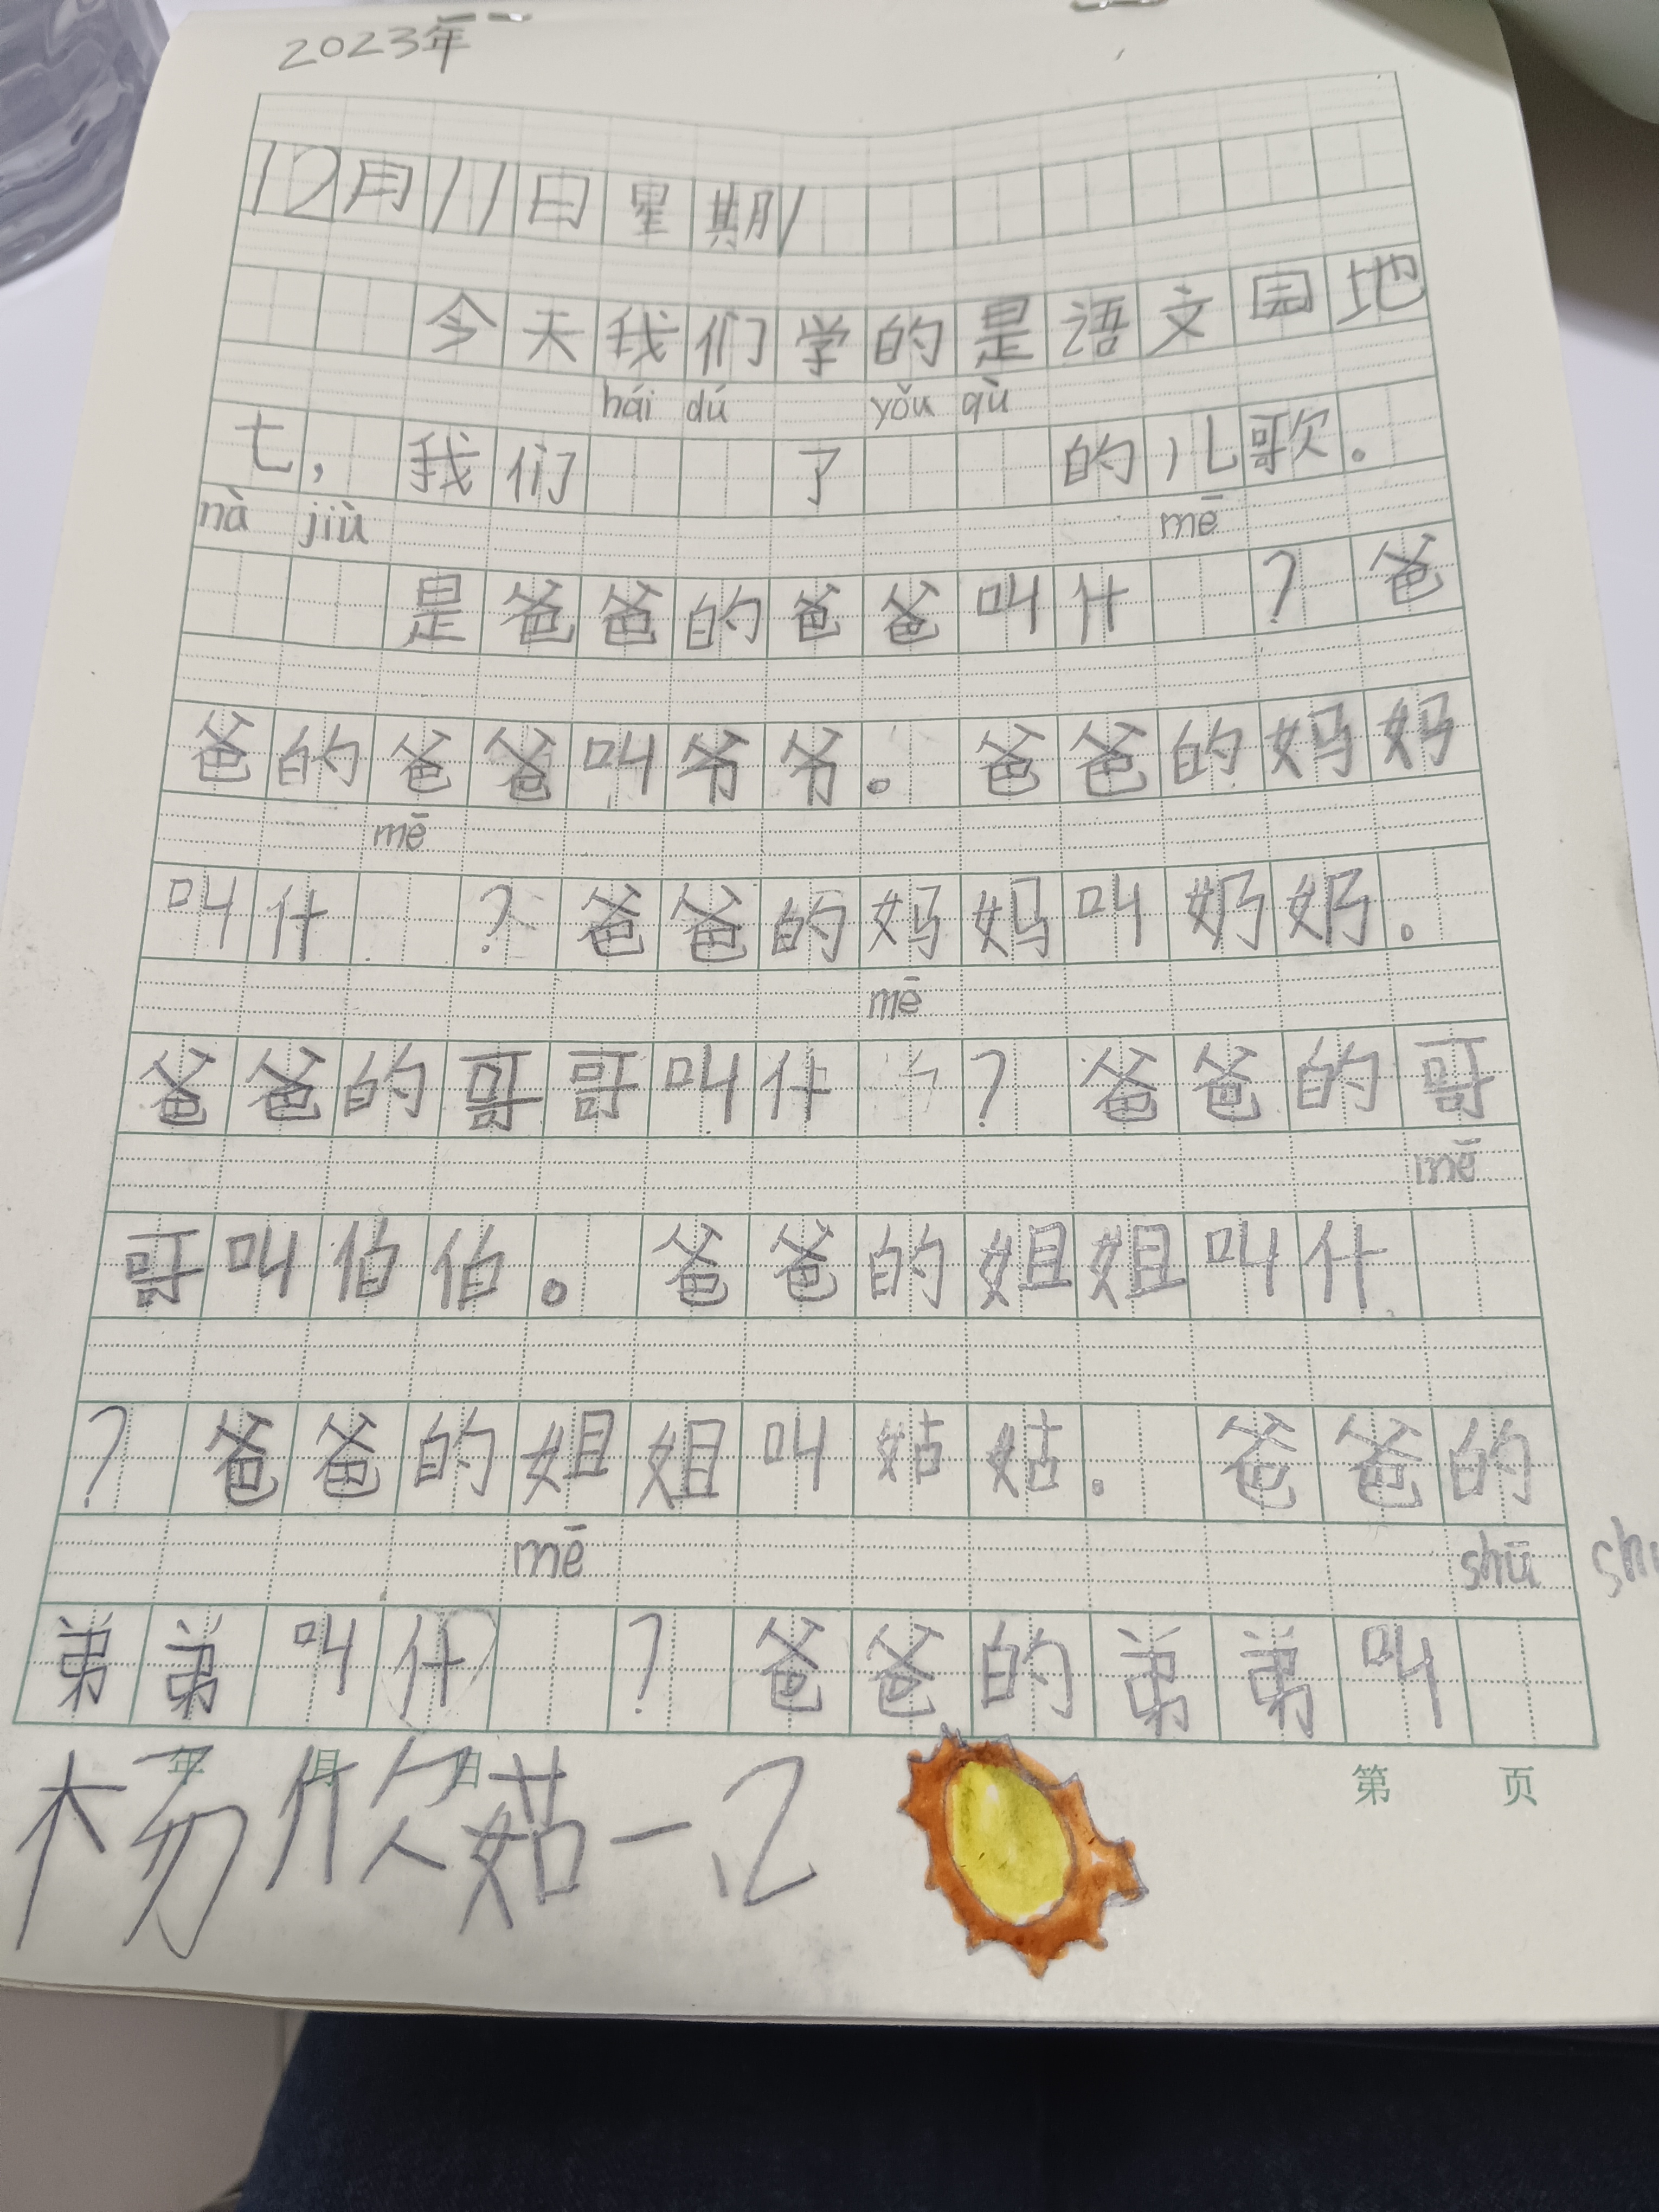 2023年
12月11日星期1
今天我们学的是语文园地
hái dú yǒu qù
七，我们 了 的儿歌。
nà jiù mē
是爸爸的爸爸叫什 ？爸
爸的爸爸叫爷爷。爸爸的妈妈
mē
叫什 ？爸爸的妈妈叫奶奶。
mē
爸爸的哥哥叫什 ？爸爸的哥
mē
哥叫伯伯。爸爸的姐姐叫什
？爸爸的姐姐叫姑姑。爸爸的
mē shū
弟弟叫什 ？爸爸的弟弟叫
年 月 日 第 页
杨 茹一